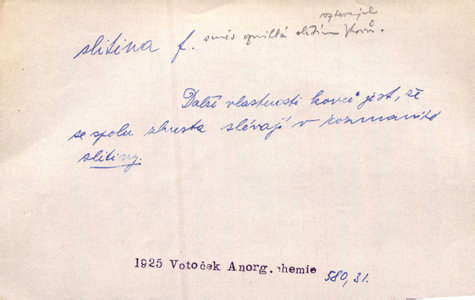 roztavených
slitina f. směs vzniklá slitím kovů.
Další vlastností kovů jest, že
se spolu zhusta slévají v rozmanité
slitiny.
1925 Votoček Anorg. chemie 580,31.